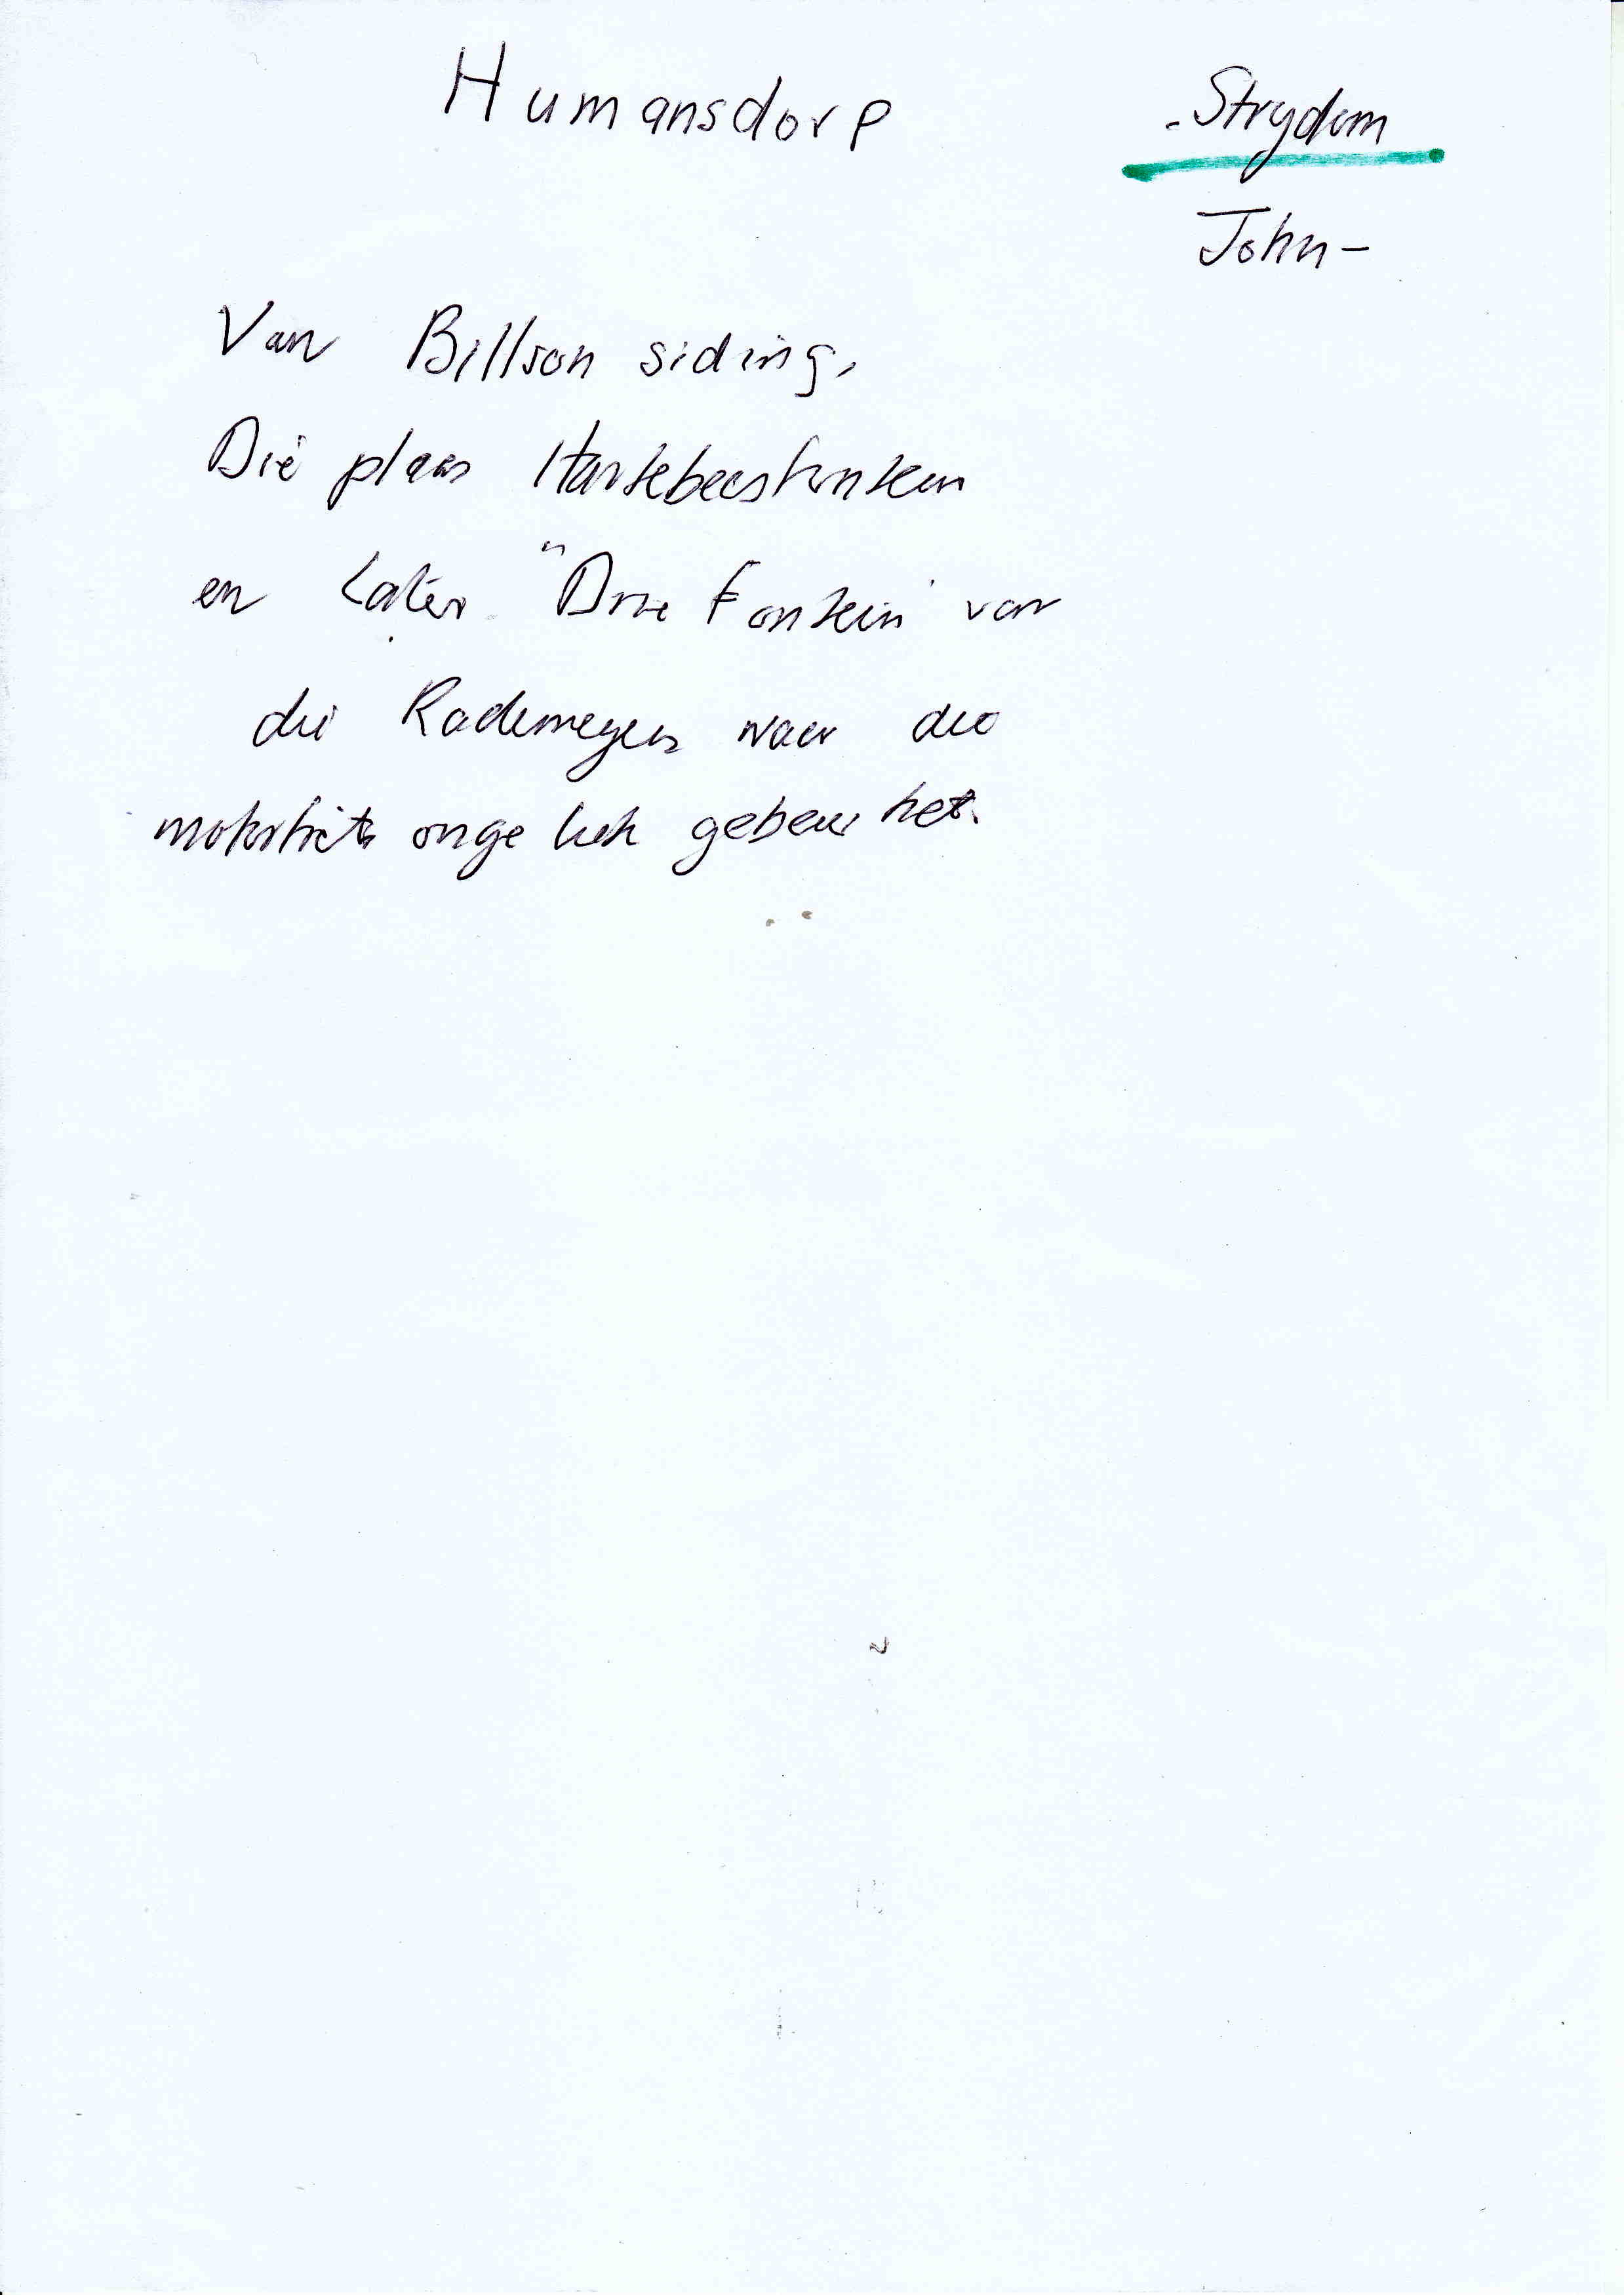 Humansdorp
- Strydom
John -
Van Billson siding,
Die plaas Hartebeesfontein
en Later "Drie Fontein" van
die Rademeyers waar die
motorfiets ongeluk gebeur het.